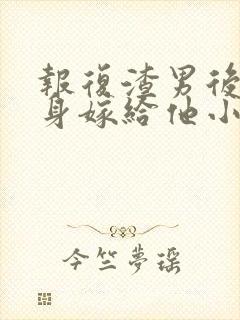 報復渣男後
身嫁給他小
今竺夢瑶